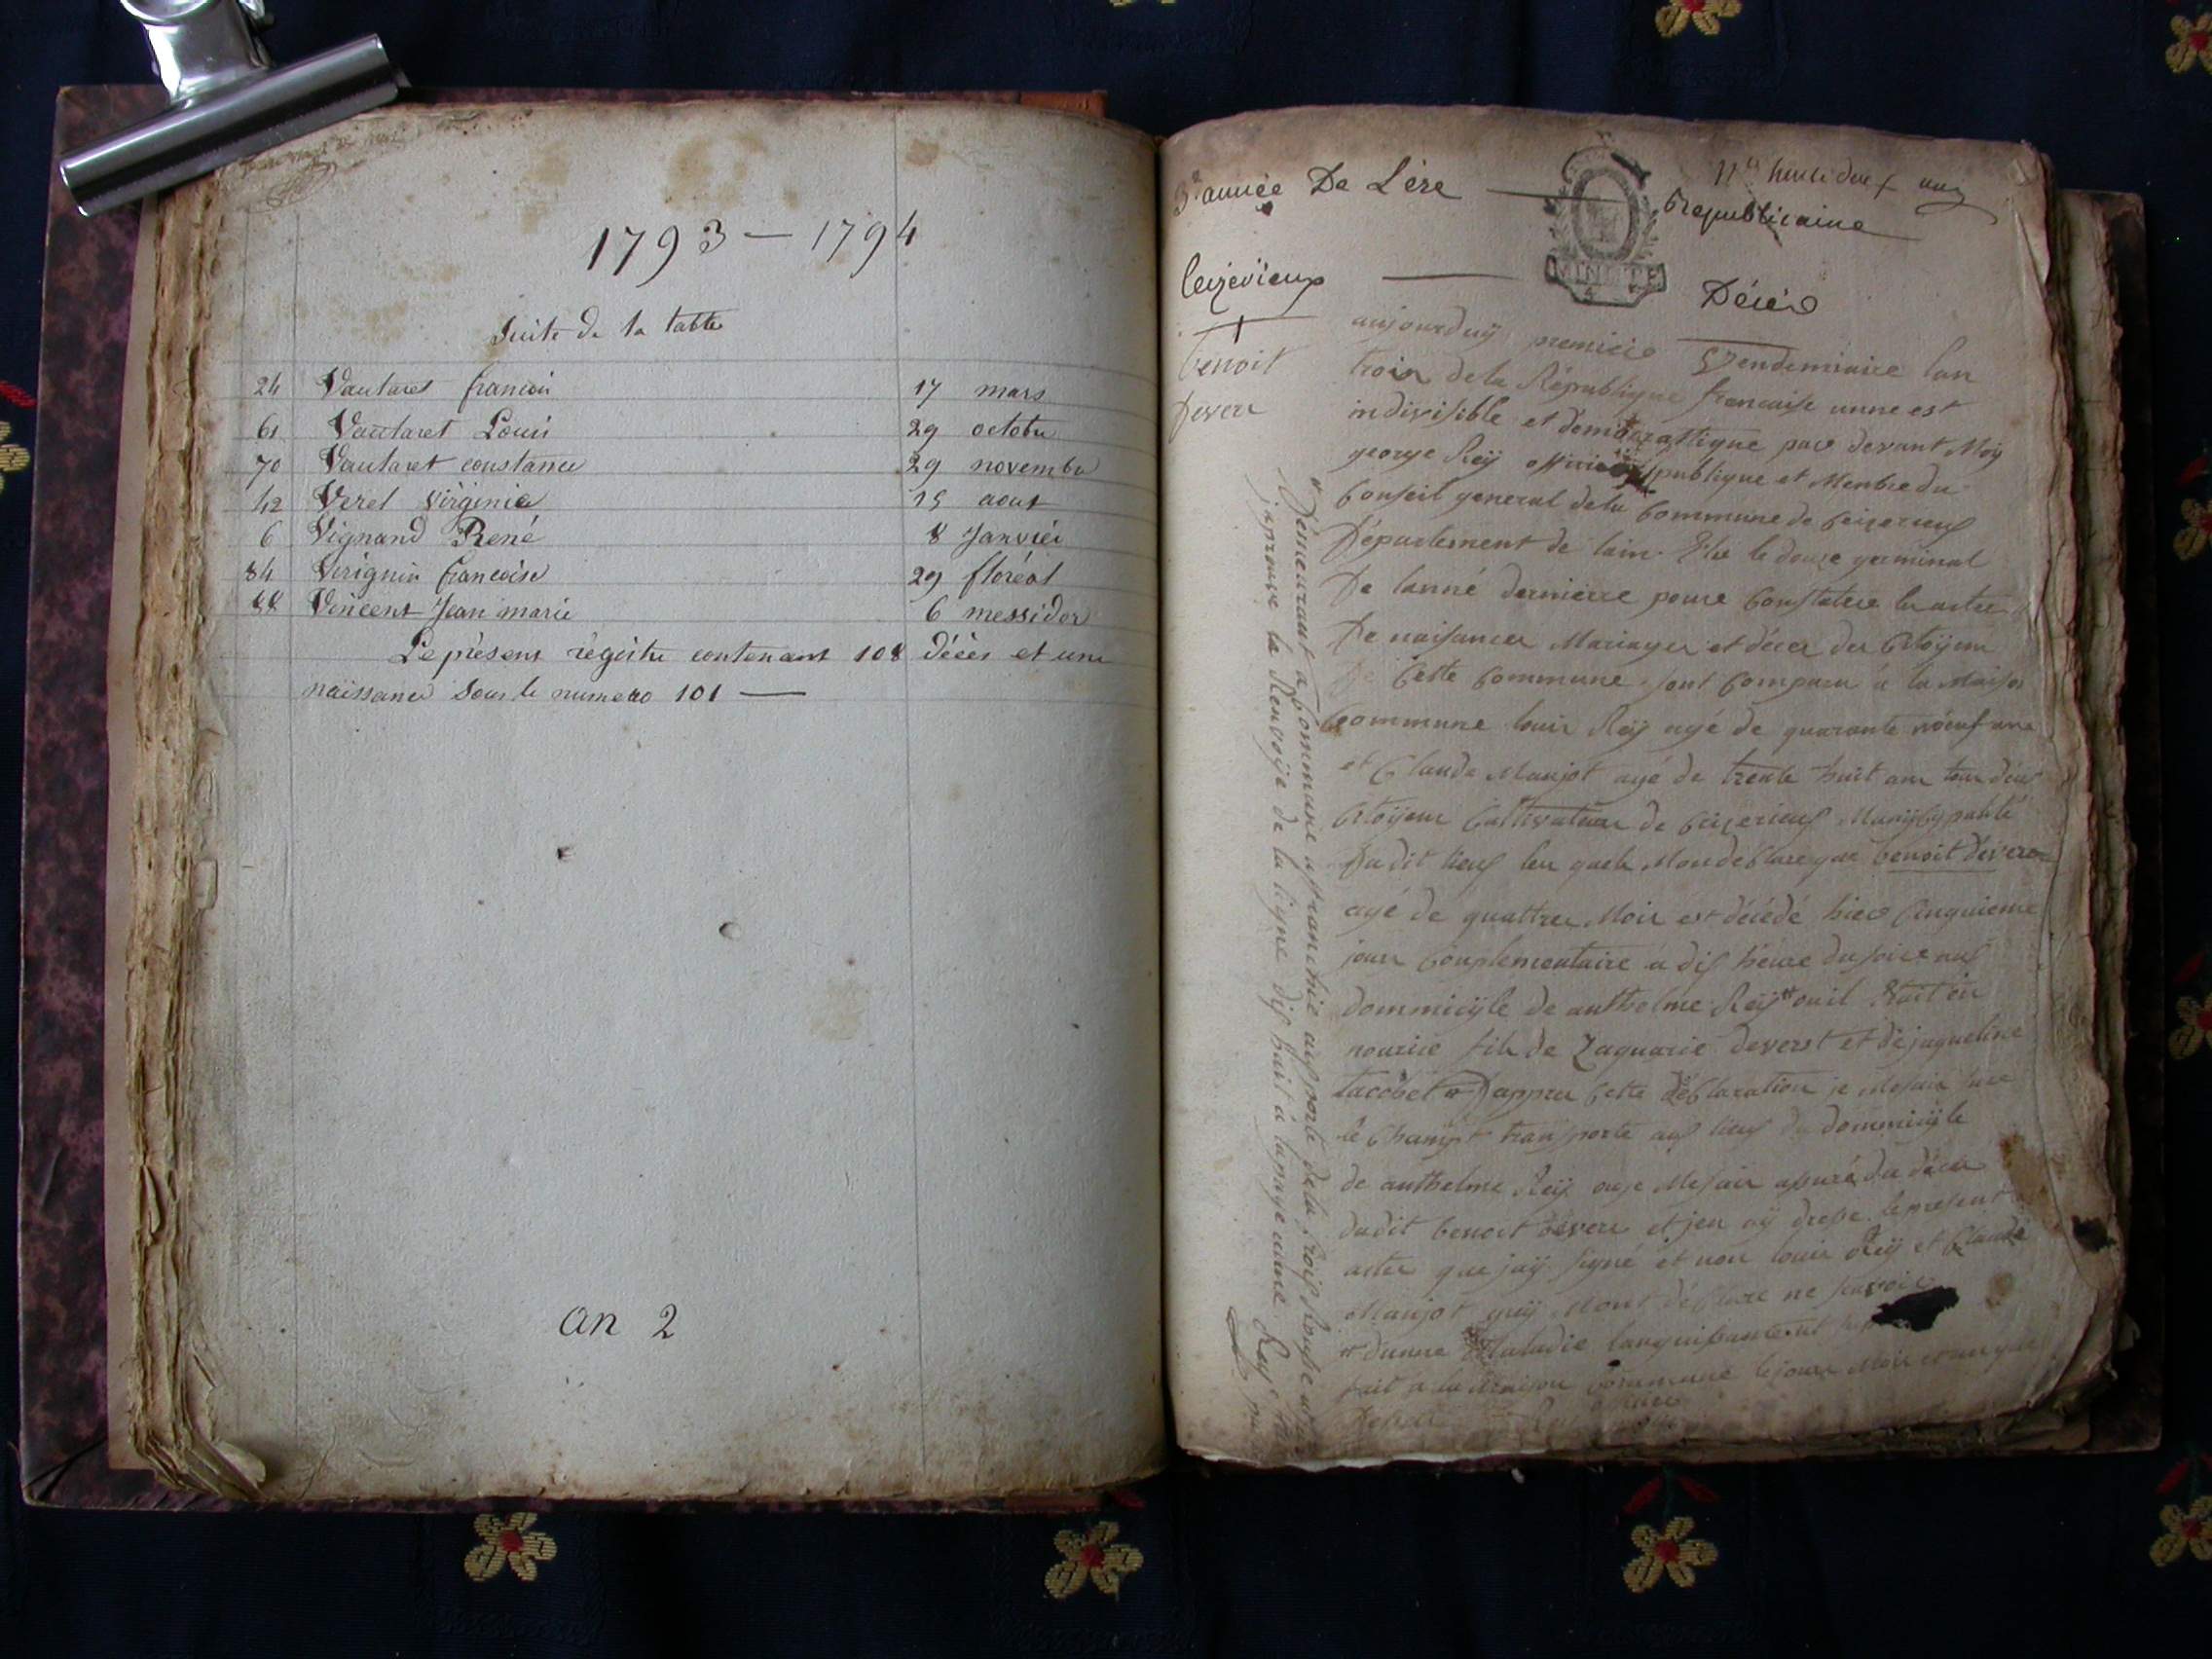 1793 — 1794
Suite de la table
24 Vautaret francois 17 mars
61 Vautaret Louis 29 octobre
70 Vautaret constance 29 novembre
42 Veret Virginie 15 aout
6 Vignand René 8 Janvier
84 Virignin francoise 29 floréal
88 Vincent Jean marie 6 messidor
Le présent régistre contenant 108 décès et une
naissance sous le numero 101 —
an 2
3e année De L'ère Republicaine
Ceizerieux
Décés
1
benoit
Devers
aujourduÿ premier Vendemiaire lan
trois de la République francaise unne est
indivisible et democrattique par devant Moy
george Reÿ officier publique et Menbre du
Conseil general dela Commune de Ceizerieux
Département de lain. Elu le douze germinal
De lanné dernierre poure Constatere les actes
De naisances Mariages et déces des Citoÿens
De Cette Commune sont Comparu á la Maison
Commune louis Reÿ agé de quarante noeuf ans
et Claude Manjot agé de trente huit ans tous deux
Citoÿens Cultivateurs de Ceizerieux
Du dit lieux les quels Mon declare que benoit devers
agé de quattres Mois est décédé hier Cinquieme
jours Conplementaire á dix héure du soire aux
dommicÿle de anthelme Reÿ ou il Etait en
nourice fils de Zaquarie devers et de jaqueline
tacobet Dappres Cette déClaration je Mesuis sure
le Champt transporte aux lieux du dommicÿle
de anthelme Reÿ ou je Mesuis assuré du déces
dudit benoit devers et jen aÿ dresse le present
actes que jaÿ signé et non louis Reÿ et Claude
Manjot quÿ Mont déClare ne scavoir
dunne Maladie languissante
fait a la Maison Commune le jours Mois et an que
Dessus
Demeurant a Commune affranchie au porte dela Croix Rousse
japrouve la Renvoÿe de la ligne dix huit á la page unne Reÿ